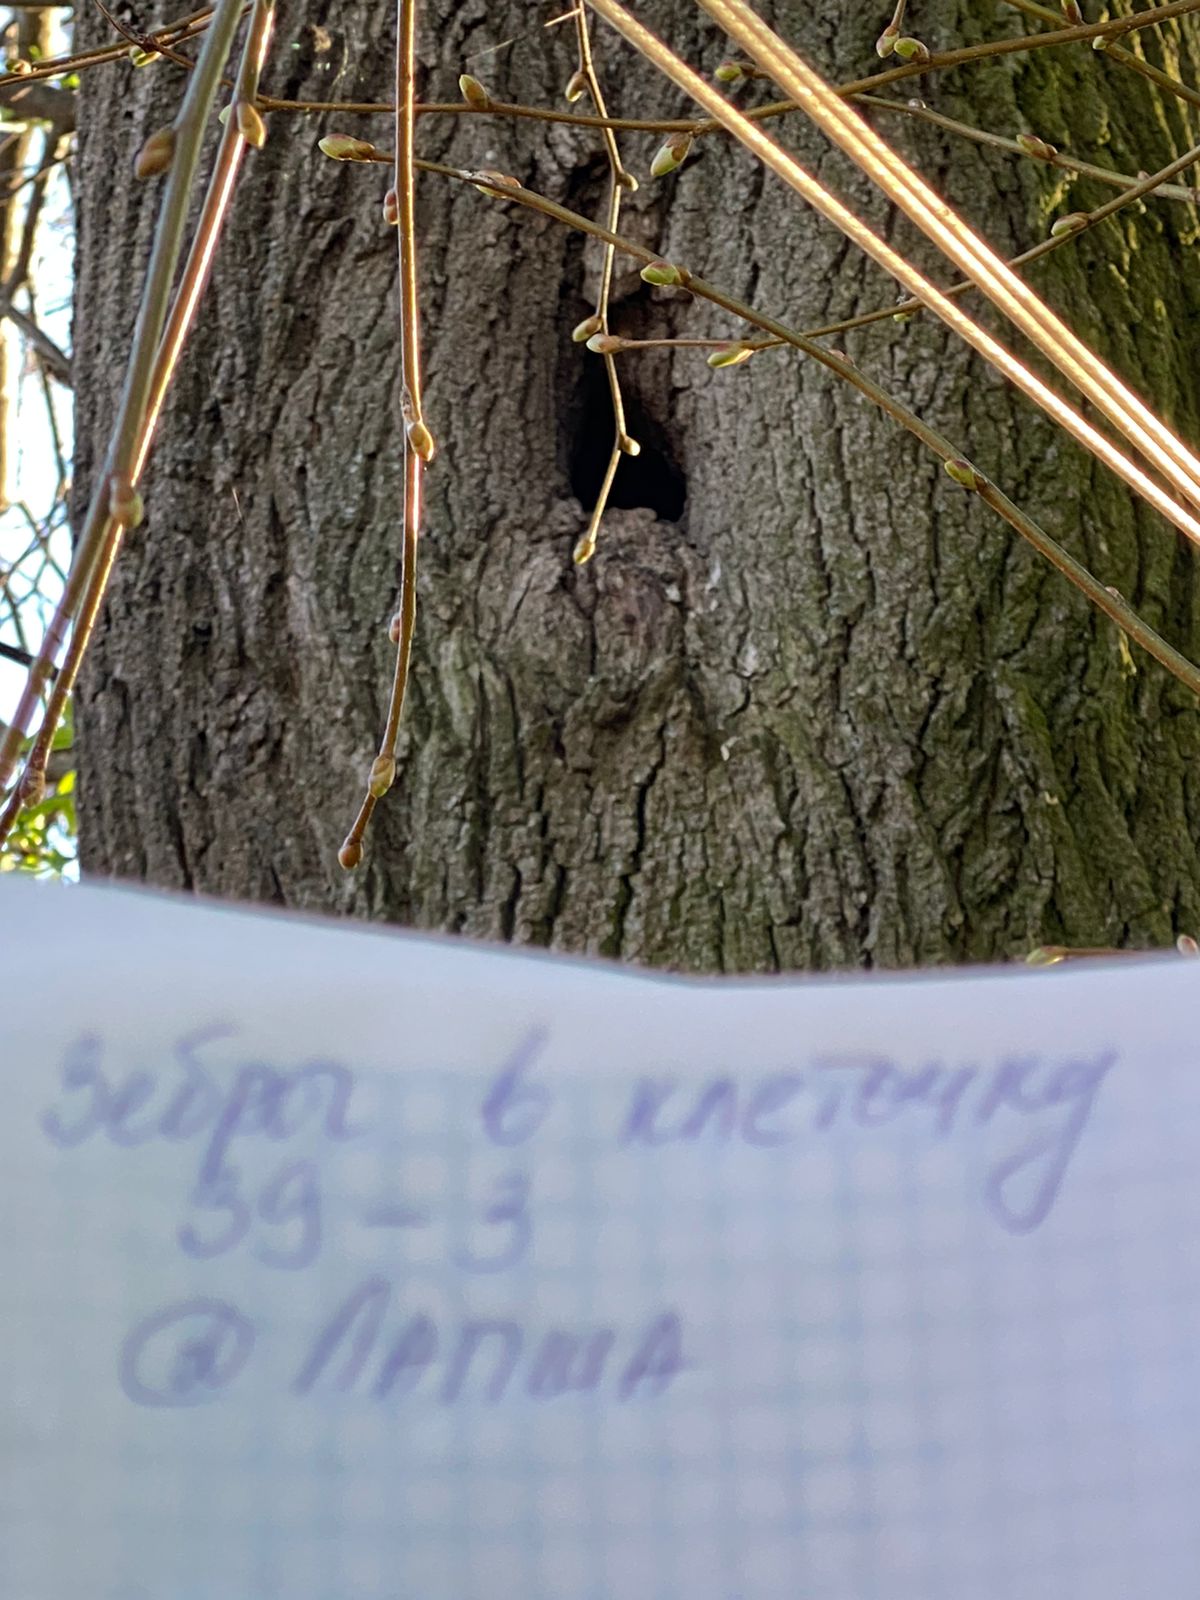 Зебра в клеточку
39-3
@ Лапша